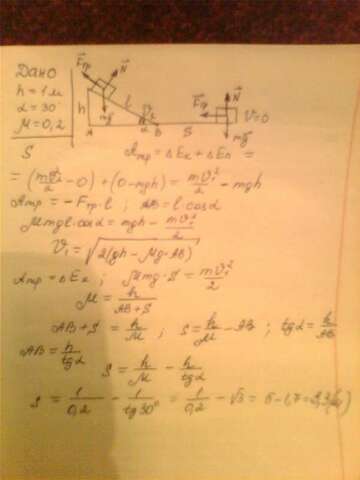 Дано
h = 1 м
α = 30°
μ = 0,2
S
h
l
A
α
B
S
V = 0
Aтр = ΔEк + ΔEп =
= (mV₁²/2 − 0) + (0 − mgh) = mV₁²/2 − mgh
Aтр = − Fтр · l ; AB = l cosα
μmgl cosα = mgh − mV₁²/2
V₁ = √2(gh − μg·AB)
Aтр = ΔEк ; μmg·S = mV₁²/2
μ = h/(AB+S)
AB + S = h/μ ; S = h/μ − AB ; tgα = h/AB
AB = h/tgα
S = h/μ − h/tgα
S = 1/0,2 − 1/tg30° = 1/0,2 − √3 = 5 − 1,7 = 3,3 (м)